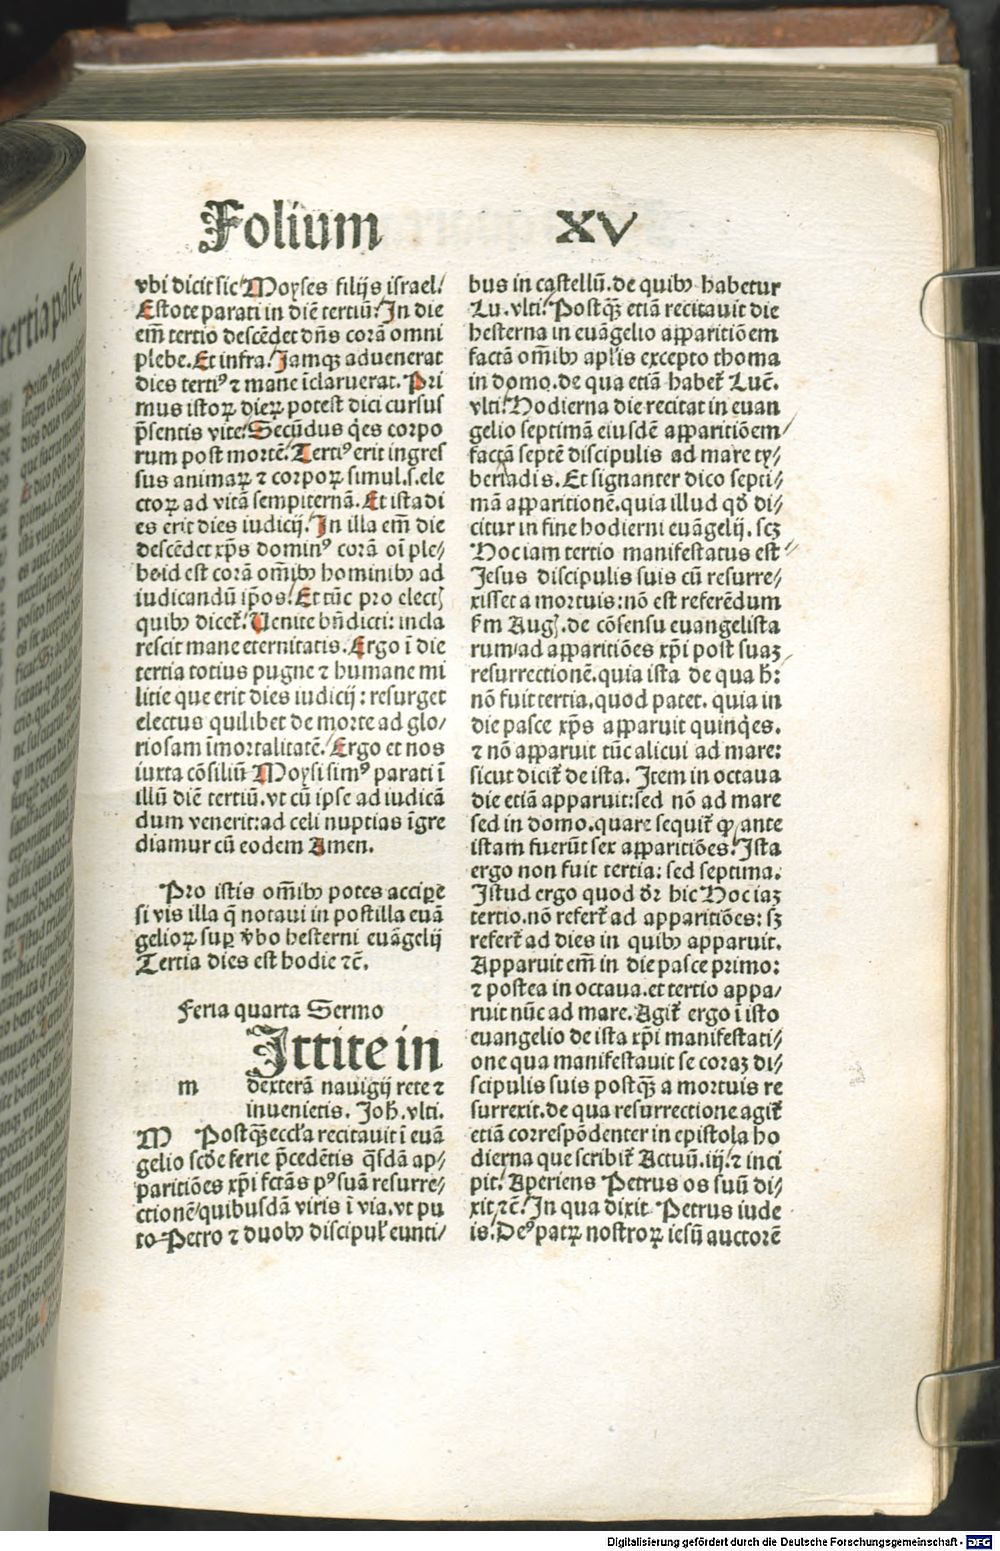 Folium XV
vbi dicit sic Moyses filijs israel/
Estote parati in diē tertiū/ In die
em̄ tertio descēdet dn̄s corā omni
plebe. Et infra/ Jamqꝫ aduenerat
dies tertiꝰ ⁊ mane īclaruerat. Pri
mus istoꝝ dieꝝ potest dici cursus
p̄sentis vite/ Secūdus q̄es corpo
rum post mortē/ Tertiꝰ erit ingres
sus animaꝝ ⁊ corpoꝝ simul.s.ele
ctoꝝ ad vitā sempiternā. Et ista di
es erit dies iudicij/ In illa em̄ die
descēdet xp̄s dominꝰ corā oī ple/
be.id est corā om̄ibꝰ hominibꝰ ad
iudicandū ip̄os/ Et tūc pro electꝭ
quibꝰ dicet̄/ Uenite bn̄dicti: incla
rescit mane eternitatis. Ergo ī die
tertia totius pugne ⁊ humane mi
litie que erit dies iudicij: resurget
electus quilibet de morte ad glo/
riosam īmortalitatē/ Ergo et nos
iuxta cōsiliū Moysi simꝰ parati ī
illū diē tertiū.vt cū ipse ad iudicā
dum venerit:ad celi nuptias īgre
diamur cū eodem Amen.
Pro istis om̄ibꝰ potes accipe
si vis illa q̄ notaui in postilla euā
gelioꝝ sup v̄bo hesterni euāgelij
Tertia dies est hodie ⁊c̄.
Feria quarta Sermo
Ittite in
m dexterā nauigij rete ⁊
inuenietis. Joh̄.vlti.
M Postqꝫ eccl̓a recitauit ī euā
gelio scd̄e ferie p̄cedētis q̄sdā ap/
paritiōes xp̄i fctās pꝰ suā resurre/
ctionē/quibusdā viris ī via.vt pu
to Petro ⁊ duobꝰ discipul̓ eunti/
bus in castellū.de quibꝰ habetur
Lu.vlti/ Postqꝫ etiā recitauit die
hesterna in euāgelio apparitiōem
factā om̄ibꝰ apl̓is excepto thoma
in domo.de qua etiā habet̄ Luc̄.
vlti/ Hodierna die recitat in euan
gelio septimā eiusdē apparitiōem/
factā septē discipulis ad mare ty/
beriadis. Et signanter dico septi/
mā apparitionē.quia illud qd̄ di/
citur in fine hodierni euāgelij.scꝫ
Hoc iam tertio manifestatus est/
Jesus discipulis suis cū resurre/
xisset a mortuis:nō est referēdum
fm̄ Augꝭ.de cōsensu euangelista
rum/ad apparitiōes xp̄i post suaꝫ
resurrectionē.quia ista de qua h̄:
nō fuit tertia.quod patet. quia in
die pasce xp̄s apparuit quinq̄es.
⁊ nō apparuit tūc alicui ad mare:
sicut dicit̄ de ista. Item in octaua
die etiā apparuit:sed nō ad mare
sed in domo.quare sequit̄ ꝙ ante
istam fuerūt sex apparitiōes/ Ista
ergo non fuit tertia: sed septima.
Istud ergo quod dr̄ hic Hoc iaꝫ
tertio.nō refert̄ ad apparitiōes: sꝫ
refert̄ ad dies in quibꝰ apparuit.
Apparuit em̄ in die pasce primo:
⁊ postea in octaua.et tertio appa/
ruit nūc ad mare. Agit̄ ergo ī isto
euangelio de ista xp̄i manifestati/
one qua manifestauit se coraꝫ di/
scipulis suis postqꝫ a mortuis re
surrexit.de qua resurrectione agit̄
etiā correspōdenter in epistola ho
dierna que scribit̄ Actuū.iij/ ⁊ inci
pit/ Aperiens Petrus os suū di/
xit/⁊c̄/ In qua dixit Petrus iude
is. Deꝰ patꝝ nostroꝝ iesū auctorē
tertia pasce
Digitalisierung gefördert durch die Deutsche Forschungsgemeinschaft - DFG